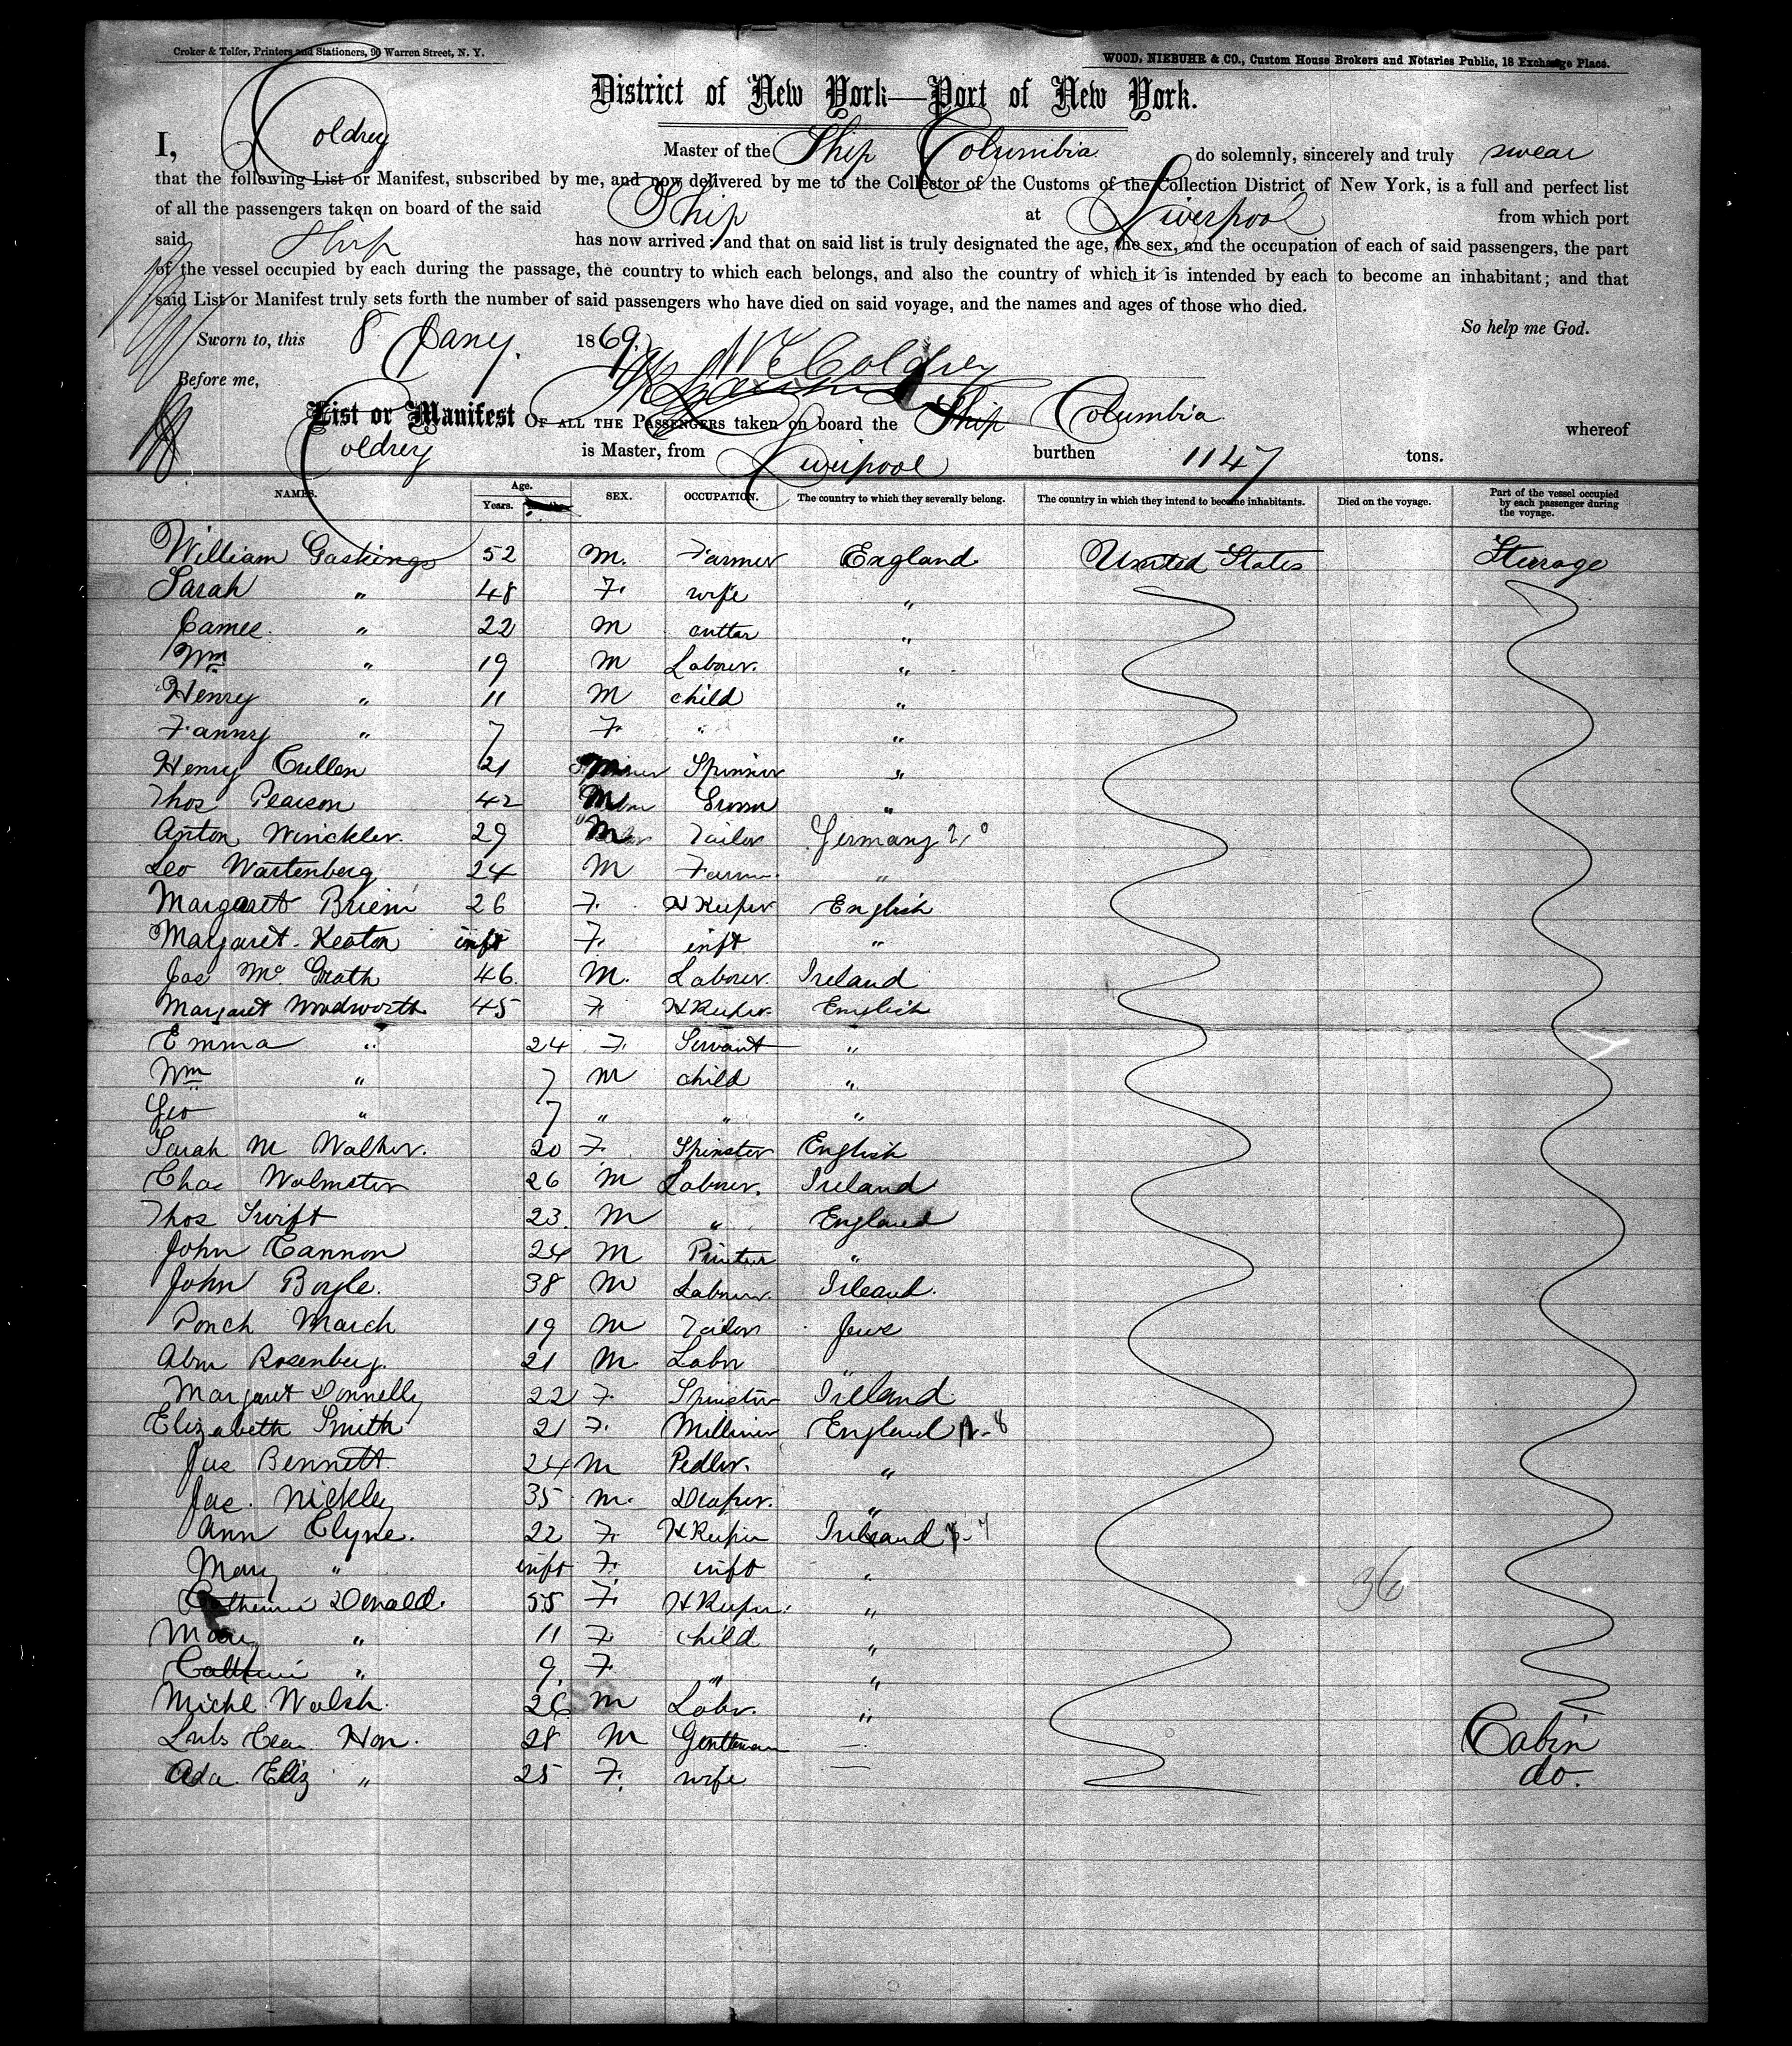 Croker & Telfer, Printers and Stationers, 90 Warren Street, N. Y.
WOOD, NIEBUHR & CO., Custom House Brokers and Notaries Public, 18 Exchange Place.
District of New York—Port of New York.
I, Coldrey Master of the Ship Columbia do solemnly, sincerely and truly swear
that the following List or Manifest, subscribed by me, and now delivered by me to the Collector of the Customs of the Collection District of New York, is a full and perfect list
of all the passengers taken on board of the said Ship at Liverpool from which port
said Ship has now arrived; and that on said list is truly designated the age, the sex, and the occupation of each of said passengers, the part
of the vessel occupied by each during the passage, the country to which each belongs, and also the country of which it is intended by each to become an inhabitant; and that
said List or Manifest truly sets forth the number of said passengers who have died on said voyage, and the names and ages of those who died.
So help me God.
Sworn to, this 8 Jany. 1869. Coldrey
Before me,
List or Manifest OF ALL THE PASSENGERS taken on board the Ship Columbia whereof
Coldrey is Master, from Liverpool burthen 1147 tons.
NAMES. Age. Years. SEX. OCCUPATION. The country to which they severally belong. The country in which they intend to become inhabitants. Died on the voyage. Part of the vessel occupied by each passenger during the voyage.
William Gaskings 52 M. Farmer England United States Sterrage
Sarah " 48 F. wife "
" 22 M cuttar "
Wm " 19 M Labour. "
Henry " 11 M child "
Fanny " 7 F. " "
Henry Cullen 21 M Spinner "
Thos Pearson 42 M "
Anton Winckler. 29 M Tailor Germany 2
Leo Wartenberg 24 M Farm. "
Margaret 26 F. H Keeper English
Margaret Keaton inft F. inft "
Jas Mc Grath 46. M. Labourer. Ireland
Margaret Woodworth 45 F H Keeper. English
Emma " 24 F. Servant "
Wm " 7 M child "
Geo " 7 " " "
Sarah M Walker. 20 F. Spinster English
Chas Walmster 26 M Labourer. Ireland
Thos Swift 23. M " England
John Cannon 24 M "
John Boyle. 38 M Labourer. Ireland.
March 19 M Tailor Jews
Abm Rosenberg. 21 M. Labr "
Margaret Donnelly 22 F. Spinster Ireland
Elizabeth Smith 21 F. Milliner England
Jas Bennett 24 M Pedler. "
Jas. Nickley 35 M. Draper. "
Ann Clyne. 22 F. H Keeper Ireland
Mary " inft F. inft "
Catherine Donald. 55 F. H Keeper. "
Mary " 11 F. child "
" 9. F. " "
Michl Walsh. 26 M Labr. "
Hon. 28 M Gentleman — Cabin
Ada Eliz " 25 F. wife — do.
36